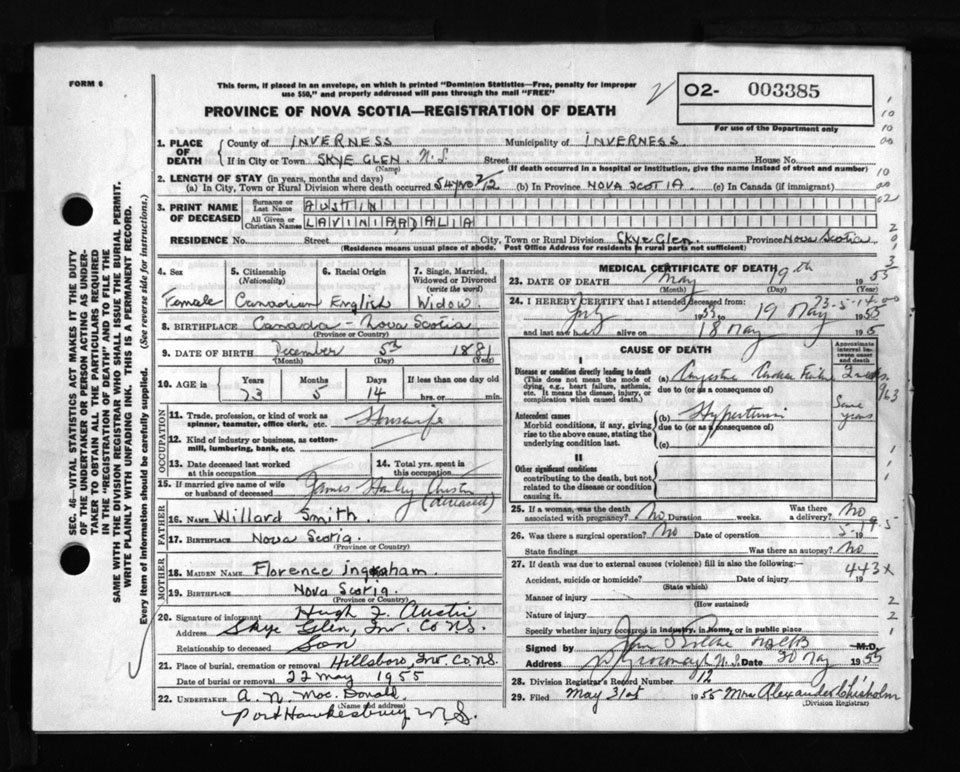 FORM 6
This form, if placed in an envelope, on which is printed "Dominion Statistics—Free, penalty for improper
use $50," and properly addressed will pass through the mail "FREE"
PROVINCE OF NOVA SCOTIA—REGISTRATION OF DEATH
02- 003385
For use of the Department only
SEC. 46—VITAL STATISTICS ACT MAKES IT THE DUTY
OF THE UNDERTAKER OR PERSON ACTING AS UNDER-
TAKER TO OBTAIN ALL THE PARTICULARS REQUIRED
IN THE "REGISTRATION OF DEATH" AND TO FILE THE
SAME WITH THE DIVISION REGISTRAR WHO SHALL ISSUE THE BURIAL PERMIT.
WRITE PLAINLY WITH UNFADING INK. THIS IS A PERMANENT RECORD.
Every item of information should be carefully supplied. (See reverse side for instructions.)
1. PLACE OF DEATH County of INVERNESS Municipality of INVERNESS.
If in City or Town SKYE GLEN. N.S. Street House No.
(Name) (If death occurred in a hospital or institution, give the name instead of street and number)
2. LENGTH OF STAY (in years, months and days)
(a) In City, Town or Rural Division where death occurred (b) In Province NOVA SCOTIA. (c) In Canada (if immigrant)
3. PRINT NAME OF DECEASED
Surname or Last Name AUSTIN
All Given or Christian Names LAVINIA DALIA
RESIDENCE No. Street City, Town or Rural Division Skye Glen. Province Nova Scotia
(Residence means usual place of abode. Post Office Address for residents in rural parts not sufficient)
4. Sex Female
5. Citizenship (Nationality) Canadian
6. Racial Origin English
7. Single, Married, Widowed or Divorced (write the word) Widow.
8. BIRTHPLACE Canada - Nova Scotia
(Province or Country)
9. DATE OF BIRTH December 5th 1881
(Month) (Day) (Year)
10. AGE in Years Months Days If less than one day old
73 5 14 hrs. or min.
OCCUPATION
11. Trade, profession, or kind of work as spinner, teamster, office clerk, etc. Housewife
12. Kind of industry or business, as cotton-mill, lumbering, bank, etc.
13. Date deceased last worked at this occupation
14. Total yrs. spent in this occupation
15. If married give name of wife or husband of deceased James Austin (deceased)
FATHER
16. NAME Willard Smith
17. BIRTHPLACE Nova Scotia.
(Province or Country)
MOTHER
18. MAIDEN NAME Florence Ingraham.
19. BIRTHPLACE Nova Scotia.
(Province or Country)
20. Signature of informant Hugh F. Austin
Address Skye Glen, Inv. Co N.S.
Relationship to deceased Son
21. Place of burial, cremation or removal Hillsboro, Inv. Co. N.S.
Date of burial or removal 22 May 1955
22. UNDERTAKER A. N. Mac.Donald.
(Name and address)
Port Hawkesbury N.S.
MEDICAL CERTIFICATE OF DEATH
23. DATE OF DEATH May 19th 1955
(Month) (Day) (Year)
24. I HEREBY CERTIFY that I attended deceased from
July 1953 to 19 May 1955
73-5-14-00
and last saw her alive on 18 May 1955
CAUSE OF DEATH
Approximate interval between onset and death
I
Disease or condition directly leading to death (a) Congestive Cardiac Failure
(This does not mean the mode of dying, e.g., heart failure, asthenia, etc. It means the disease, injury, or complication which caused death.) due to (or as a consequence of)
Antecedent causes (b) Hypertension Some years
Morbid conditions, if any, giving rise to the above cause, stating the underlying condition last. due to (or as a consequence of)
(c)
II
Other significant conditions contributing to the death, but not related to the disease or condition causing it.
25. If a woman, was the death associated with pregnancy? No Duration weeks. Was there a delivery? No
26. Was there a surgical operation? No Date of operation 19
State findings Was there an autopsy? No
27. If death was due to external causes (violence) fill in also the following:—
443X
Accident, suicide or homicide? Date of injury 19
(State which)
Manner of injury
(How sustained)
Nature of injury
Specify whether injury occurred in industry, in home, or in public place
Signed by M.D.
Address N.S. Date 20 May 1955
28. Division Registrar's Record Number 12
29. Filed May 31st 1955 Mrs Alexander Chisholm
(Division Registrar)